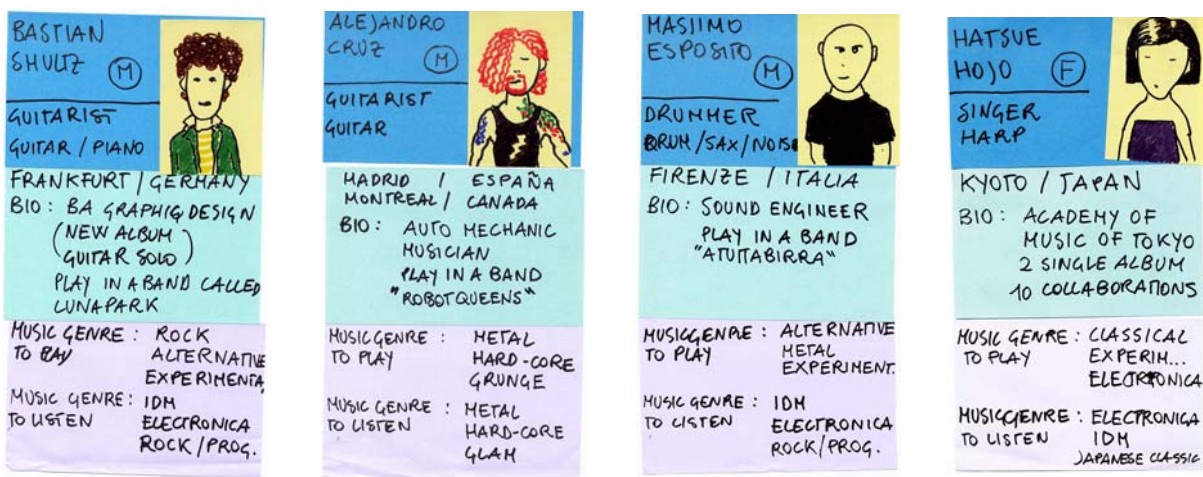 BASTIAN
SHULTZ (M)
GUITARIST
GUITAR / PIANO
FRANKFURT / GERMANY
BIO: BA GRAPHIC DESIGN
(NEW ALBUM
GUITAR SOLO)
PLAY IN A BAND CALLED
LUNAPARK
MUSIC GENRE: ROCK
TO PLAY ALTERNATIVE
EXPERIMENTA
MUSIC GENRE: IDM
TO LISTEN ELECTRONICA
ROCK/PROG.
ALEJANDRO
CRUZ (M)
GUITARIST
GUITAR
MADRID / ESPAÑA
MONTREAL / CANADA
BIO: AUTO MECHANIC
MUSICIAN
PLAY IN A BAND
"ROBOTQUEENS"
MUSIC GENRE: METAL
TO PLAY HARD-CORE
GRUNGE
MUSIC GENRE: METAL
TO LISTEN HARD-CORE
GLAM
MASIIMO
ESPOSITO (M)
DRUMMER
DRUM/SAX/NOISE
FIRENZE / ITALIA
BIO: SOUND ENGINEER
PLAY IN A BAND
"ATUTTABIRRA"
MUSIC GENRE: ALTERNATIVE
TO PLAY METAL
EXPERIMENT.
MUSIC GENRE: IDM
TO LISTEN ELECTRONICA
ROCK/PROG.
HATSUE
HOJO (F)
SINGER
HARP
KYOTO / JAPAN
BIO: ACADEMY OF
MUSIC OF TOKYO
2 SINGLE ALBUM
10 COLLABORATIONS
MUSIC GENRE: CLASSICAL
TO PLAY EXPERIM...
ELECTRONICA
MUSIC GENRE: ELECTRONICA
TO LISTEN IDM
JAPANESE CLASSIC